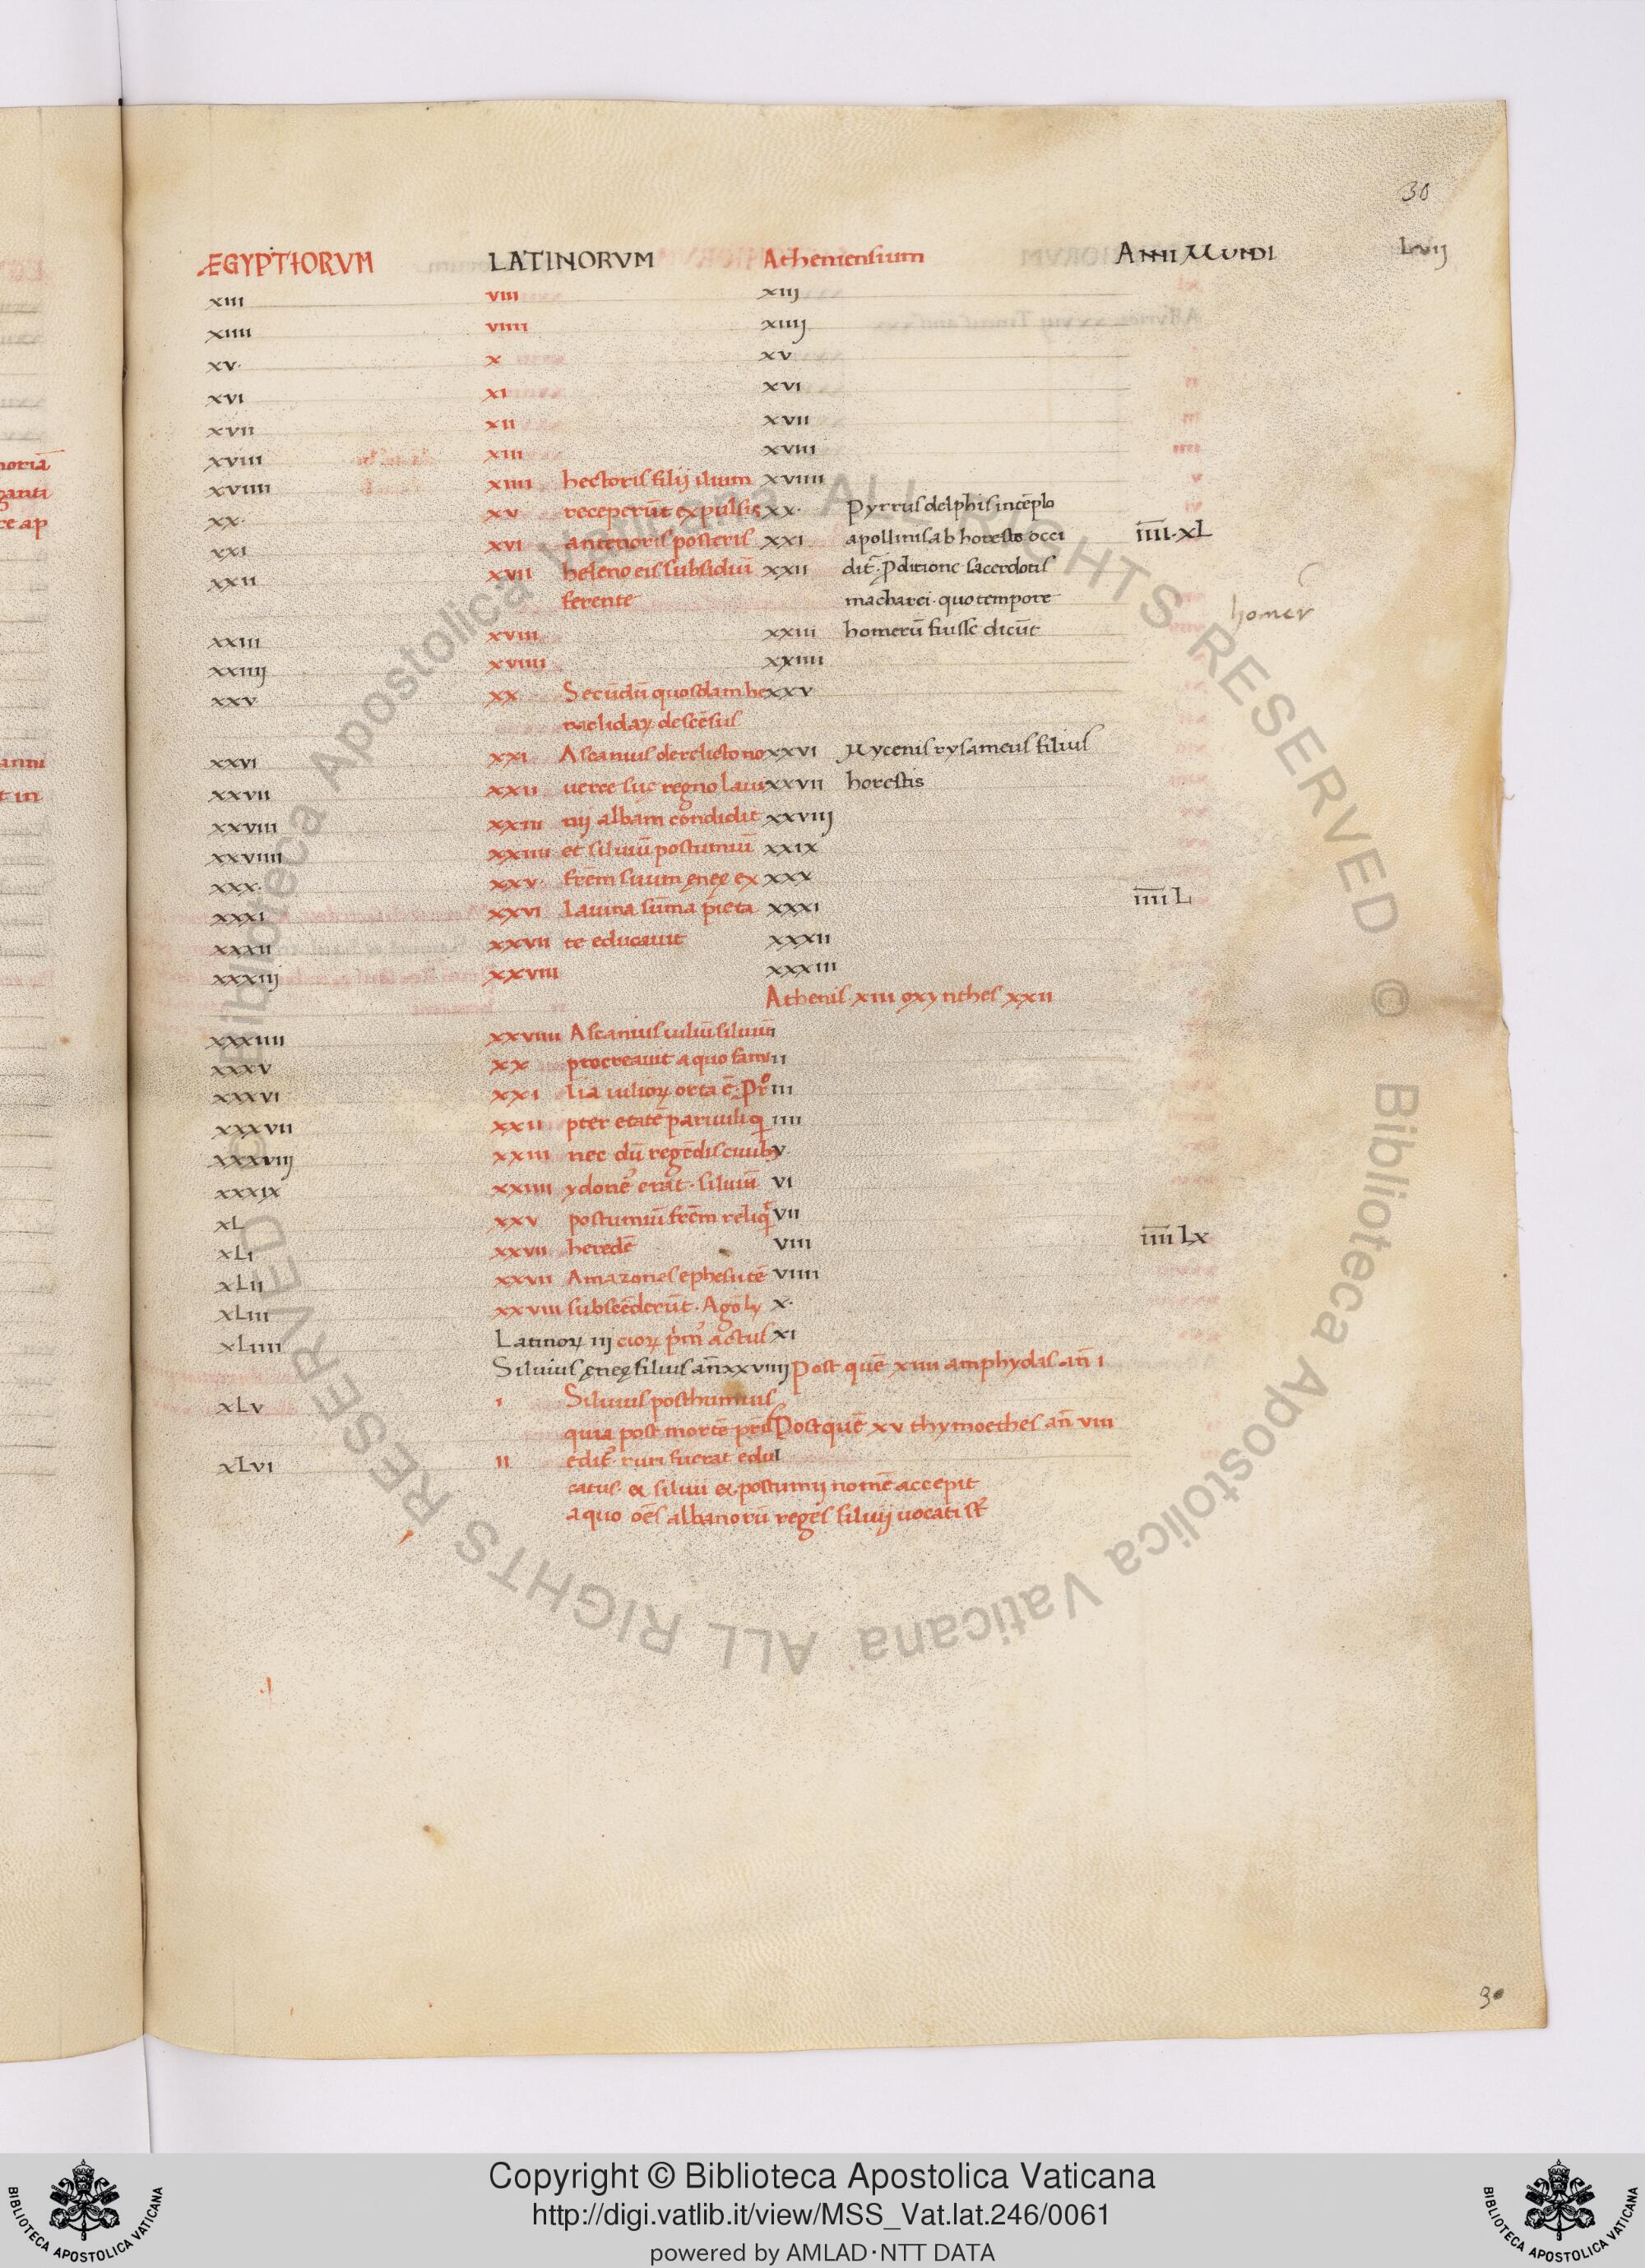 30
ÆGYPTIORVM LATINORVM Atheniensium ANNI MVNDI Lvij
xiii viii xiij
xiiii viiii xiiij
xv· x xv
xvi xi xvi
xvii xii xvii
xviii xiii xviii
xviiii xiiii hectoris filij ilium xviiii
xx· xv receperūt expulsis xx· Pyrrus delphis in tēplo
xxi xvi antenoris posteris xxi apollinis ab horeste occi iiii·xL
xxii xvii heleno eis subsidiū xxii dit᷒· ꝓditione sacerdotis
ferente macharei· quo tempore homer
xxiii xviii xxiii homerū fuisse dicūt
xxiiij xviiii xxiiii
xxv xx Secūdū quosdam he xxv
raclidaꝝ descēsus
xxvi xxi Ascanius derelicto no xxvi Mycenis tysameus filius
xxvii xxii uerce suę regno laui xxvii horestis
xxviii xxiii nij albam condidit xxviij
xxviiii xxiiii et siluiū postumiū xxix
xxx· xxv· frēm suum ęneę ex xxx
xxxi xxvi lauina sūma pieta xxxi iiii L
xxxii xxvii te educauit xxxii
xxxiij xxviii xxxiii
Athenis xiii oxynthes xxii
xxxiiii xxviiii Ascanius iuliū siluiū i
xxxv xx procreauit a quo fami ii
xxxvi xxi lia iulioꝝ orta ē· Pro iii
xxxvii xxii pter etatē paruuli q iiii
xxxviij xxiii nec dū regēdis ciuib; v
xxxix xxiiii ydone᷒ erat· siluiū vi
xL xxv postumiū frēm reliqͥt vii
xLi xxvii heredē viii iiii Lx
xLii xxvii Amazones ephesi tē viiii
xLiii xxviii subscēderūt· Agō ly x·
xLiiii Latinoꝝ iij cioꝝ pͥm᷒ actus xi
Siluius ęneę filius an̄ xxviiij Post quē xiiii amphydas an̄ i
xLv i Siluius posthumius
quia post mortē pr̄is Post quē xv thymoethes an̄ viii
xLvi ii edit᷒· ruri fuerat edu i
catus· & siluii & postumij nomē accepit
a quo oēs albanorū reges siluij uocati st᷒
30
Copyright © Biblioteca Apostolica Vaticana
http://digi.vatlib.it/view/MSS_Vat.lat.246/0061
powered by AMLAD·NTT DATA
BIBLIOTECA APOSTOLICA VATICANA
BIBLIOTECA APOSTOLICA VATICANA
© Biblioteca Apostolica Vaticana ALL RIGHTS RESERVED © Biblioteca Apostolica Vaticana ALL RIGHTS RESERVED